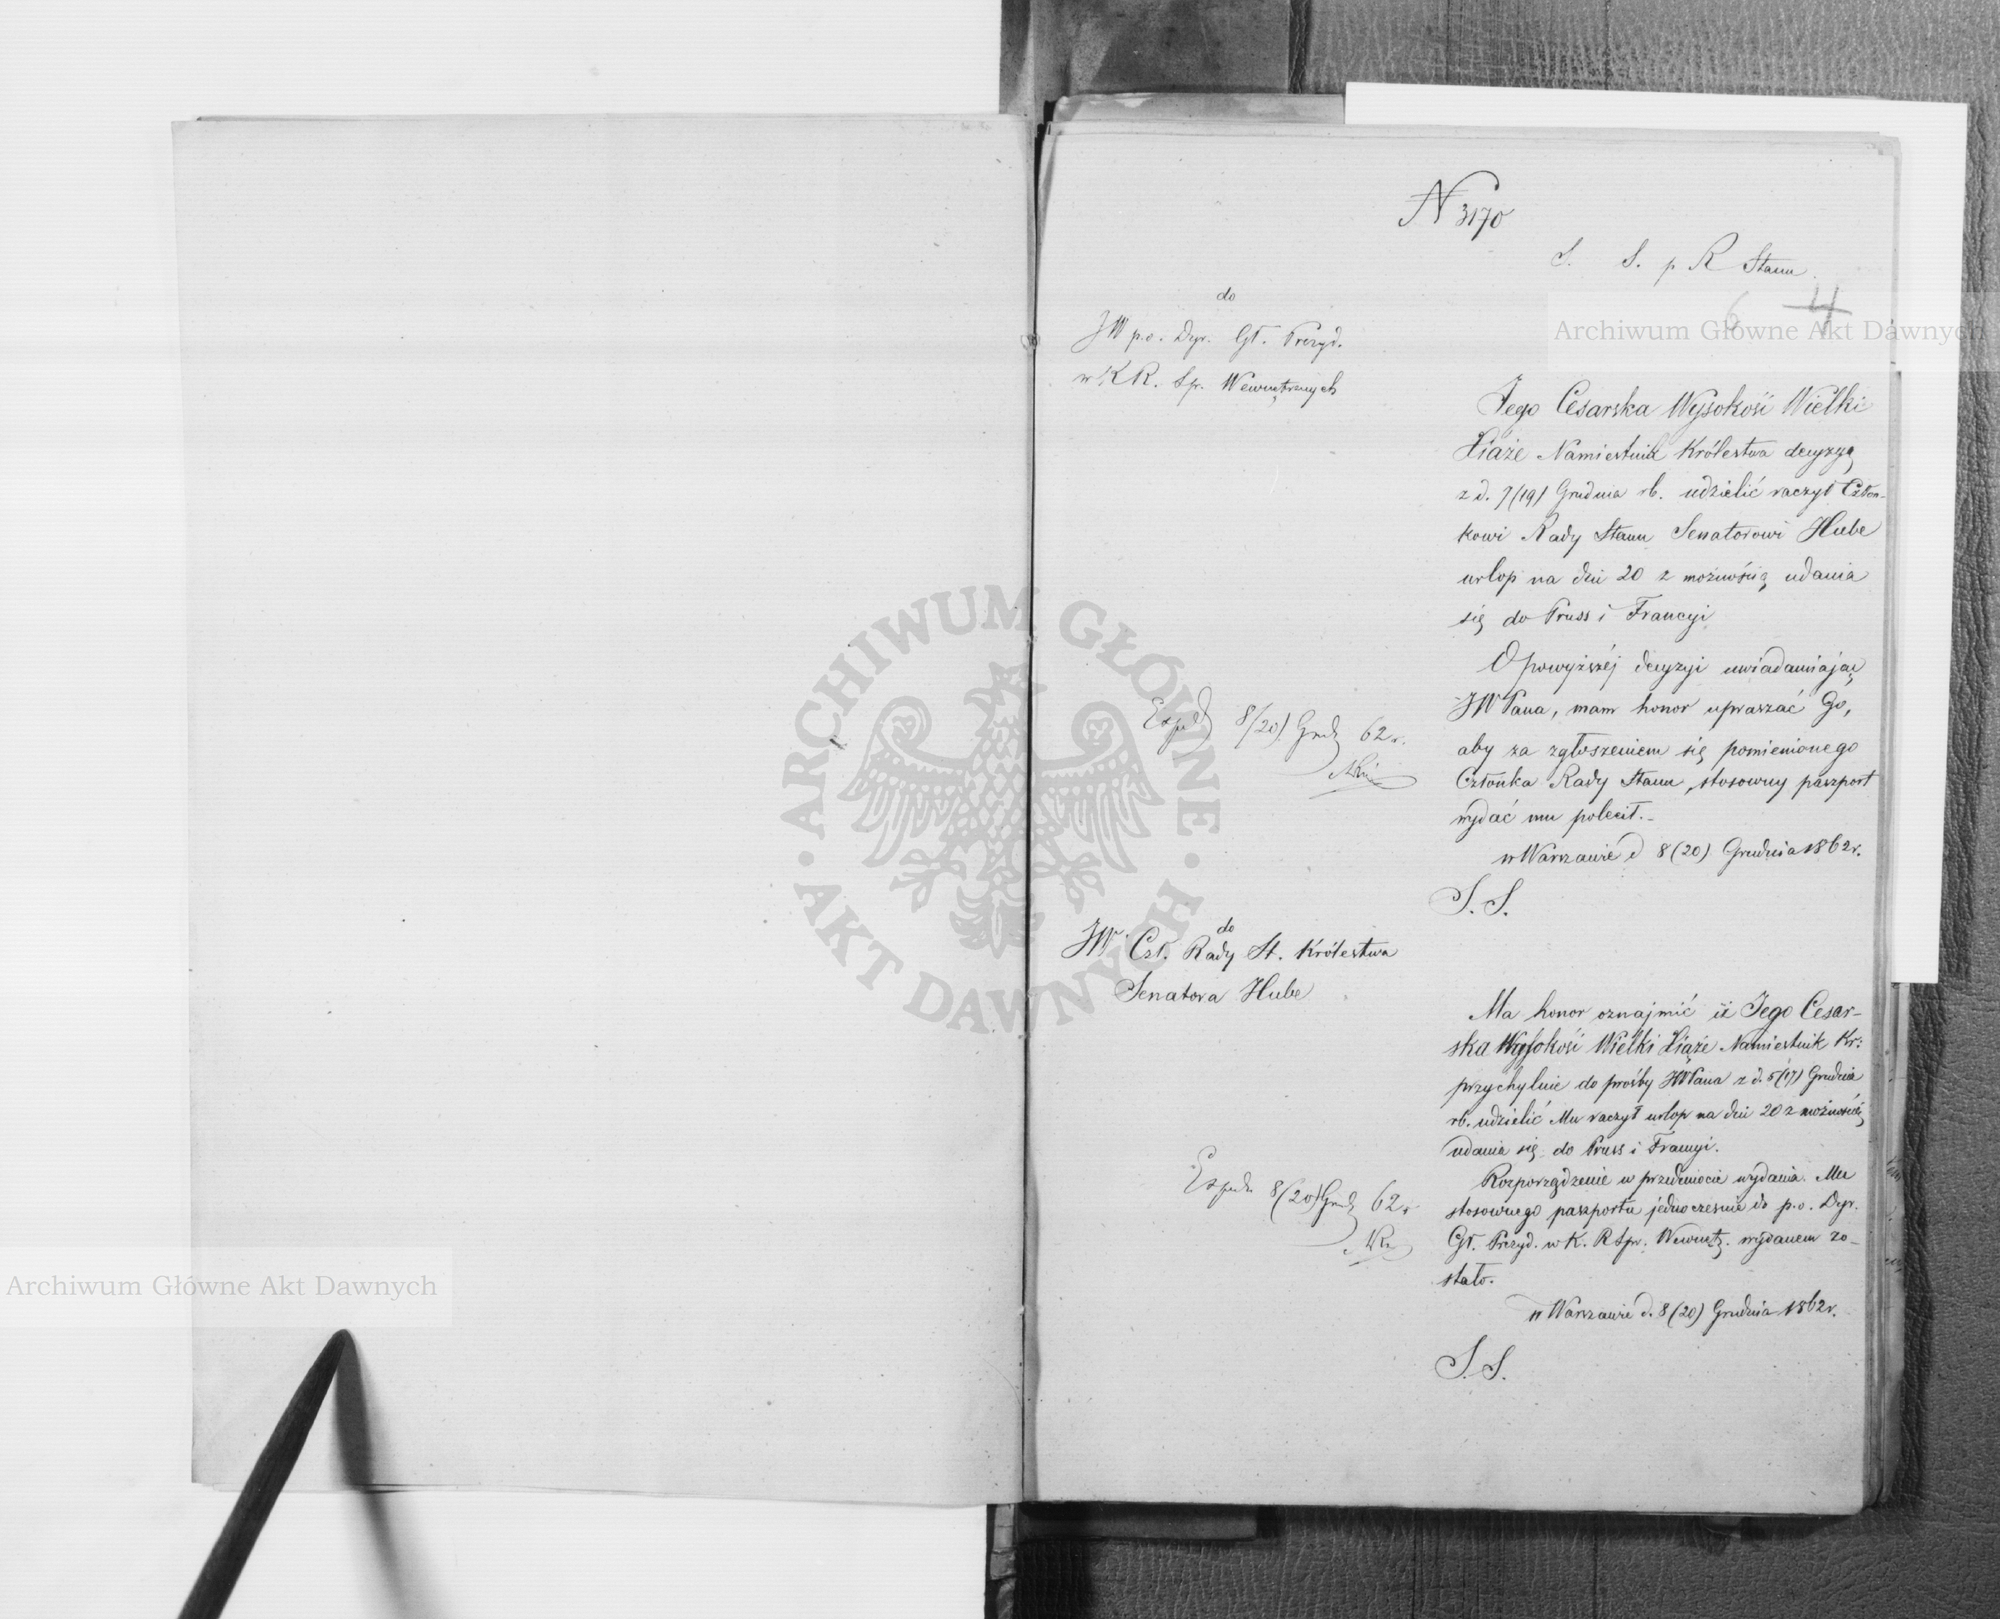 N 3170
S. S. p R Stanu
6 4
do
JW p.o. Dyr. Gł. Prezyd.
w K R. Spr. Wewnętrznych
Jego Cesarska Wysokość Wielki
Xiąże Namiestnik Królestwa decyzyą
z d. 7/19/ Grudnia rb. udzielić raczył Człon-
kowi Rady Stanu Senatorowi Hube
urlop na dni 20 z możnością udania
się do Pruss i Francyi
O powyższéj decyzyi uwiadamiając
JW Pana, mam honor upraszać Go,
aby za zgłoszeniem się pomienionego
Członka Rady Stanu, stosowny paszport
wydać mu polecił.-
w Warszawie d 8 (20) Grudnia 1862 r.
S. S.
Exped 8/20) Grud 62 r.
do
JW Czł. Rady St. Królestwa
Senatora Hube
Ma honor oznajmić iż Jego Cesar-
ska Wysokość Wielki Xiąże Namiestnik Kr:
przychylnie do prośby JW Pana z d. 5 (17) Grudnia
rb. udzielić Mu raczył urlop na dni 20 z możnością
udania się do Pruss i Francyi.
Rozporządzenie w przedmiocie wydania Mu
stosownego paszportu jednocześnie do p.o. Dyr.
Gł. Prezyd. w K. R Spr. Wewnętz. wydanem zo-
stało.
w Warszawie d. 8 (20) Grudnia 1862 r.
S. S.
Exped 8 (20) Grud 62 r
Archiwum Główne Akt Dawnych
Archiwum Główne Akt Dawnych
ARCHIWUM GŁÓWNE
AKT DAWNYCH